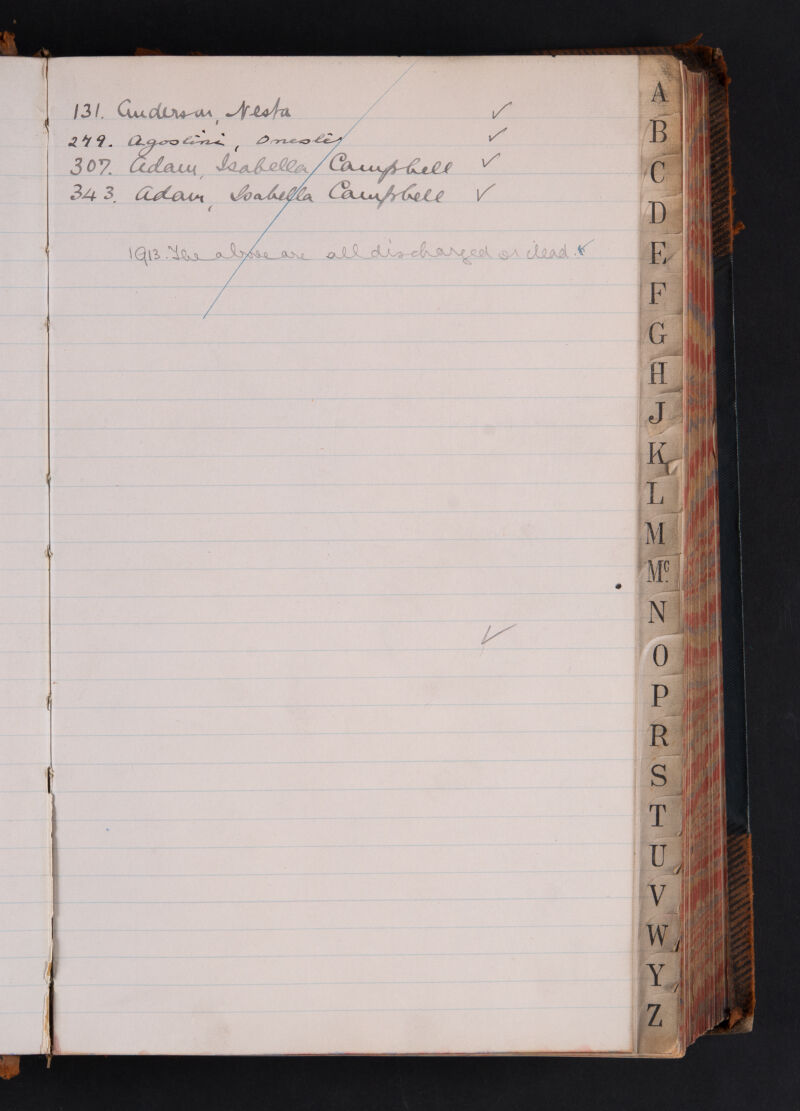 131. Anderson, Nesta ✓
279. Agostini, Onesti ✓
307. Adam, Isabella Campbell ✓
343. Adam, Isabella Campbell ✓
1913. The above are all discharged or dead. ✓
✓
A
B
C
D
E
F
G
H
J
K
L
M
Mc
N
O
P
R
S
T
U
V
W
Y
Z